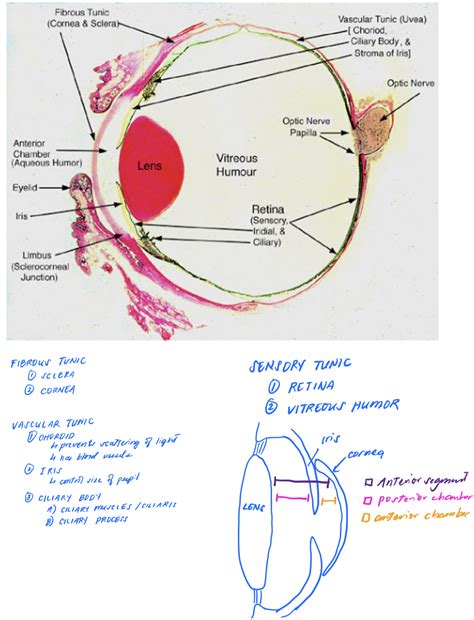 Fibrous Tunic
(Cornea & Sclera)
Vascular Tunic (Uvea)
[ Choriod,
Ciliary Body, &
Stroma of Iris]
Optic Nerve
Optic Nerve
Papilla
Anterior
Chamber
(Aqueous Humor)
Lens
Vitreous
Humour
Eyelid
Iris
Retina
(Sensory,
Iridial, &
Ciliary)
Limbus
(Sclerocorneal
Junction)
FIBROUS TUNIC
① SCLERA
② CORNEA
VASCULAR TUNIC
① CHOROID
↳ prevents scattering of light
↳ has blood vessels
② IRIS
↳ control size of pupil
③ CILIARY BODY
A) CILIARY MUSCLES / CILIARIS
B) CILIARY PROCESS
SENSORY TUNIC
① RETINA
② VITREOUS HUMOR
iris
cornea
LENS
Anterior segment
posterior chamber
anterior chamber